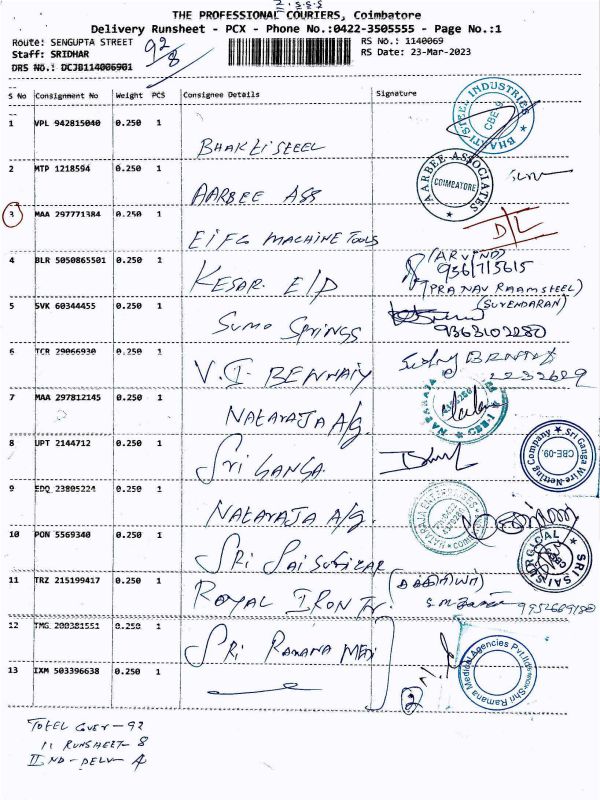 THE PROFESSIONAL COURIERS, Coimbatore
Delivery Runsheet - PCX - Phone No.:0422-3505555 - Page No.:1
Route: SENGUPTA STREET
RS No.: 1140069
Staff: SRIDHAR
92/8
RS Date: 23-Mar-2023
DRS No.: DCJB114006901
S No Consignment No Weight PCS Consignee Details Signature
1 VPL 942815040 0.250 1 BHAKTI STEEL
BHAKTI STEEL INDUSTRIES CBE-9
2 MTP 1218594 0.250 1 AARBEE ASS
AARBEE ASSOCIATES COIMBATORE
3 MAA 297771384 0.250 1 EIFG MACHINE TOOLS
D/L
4 BLR 5050865501 0.250 1 KESAR E/P
(ARVIND)
PRANAV RAAM STEEL)
5 SVK 60344455 0.250 1 SUMO SPRINGS
(SURENDARAN)
9363102280
6 TCR 29066930 0.250 1 V.G. BENNAIY
2232629
7 MAA 297812145 0.250 1 NATARAJA A/g.
8 UPT 2144712 0.250 1 SRI GANGA.
Sri Ganga Wire Netting Company CBE-09
9 EDQ 23805224 0.250 1 NATARAJA A/g.
NATARAJA ENTERPRISES
10 PON 5569340 0.250 1 SRI SAI SURGICAL
SRI SAI SURGICAL
11 TRZ 215199417 0.250 1 ROYAL IRON Tr.
12 TMG 200381551 0.250 1 SRI RAMANA MEDI
Shri Ramana Medical Agencies Pvt.Ltd
13 IXM 503396638 0.250 1
2
TOTEL COVER - 92
11 RUNSHEET - 8
II ND - DELV - 4